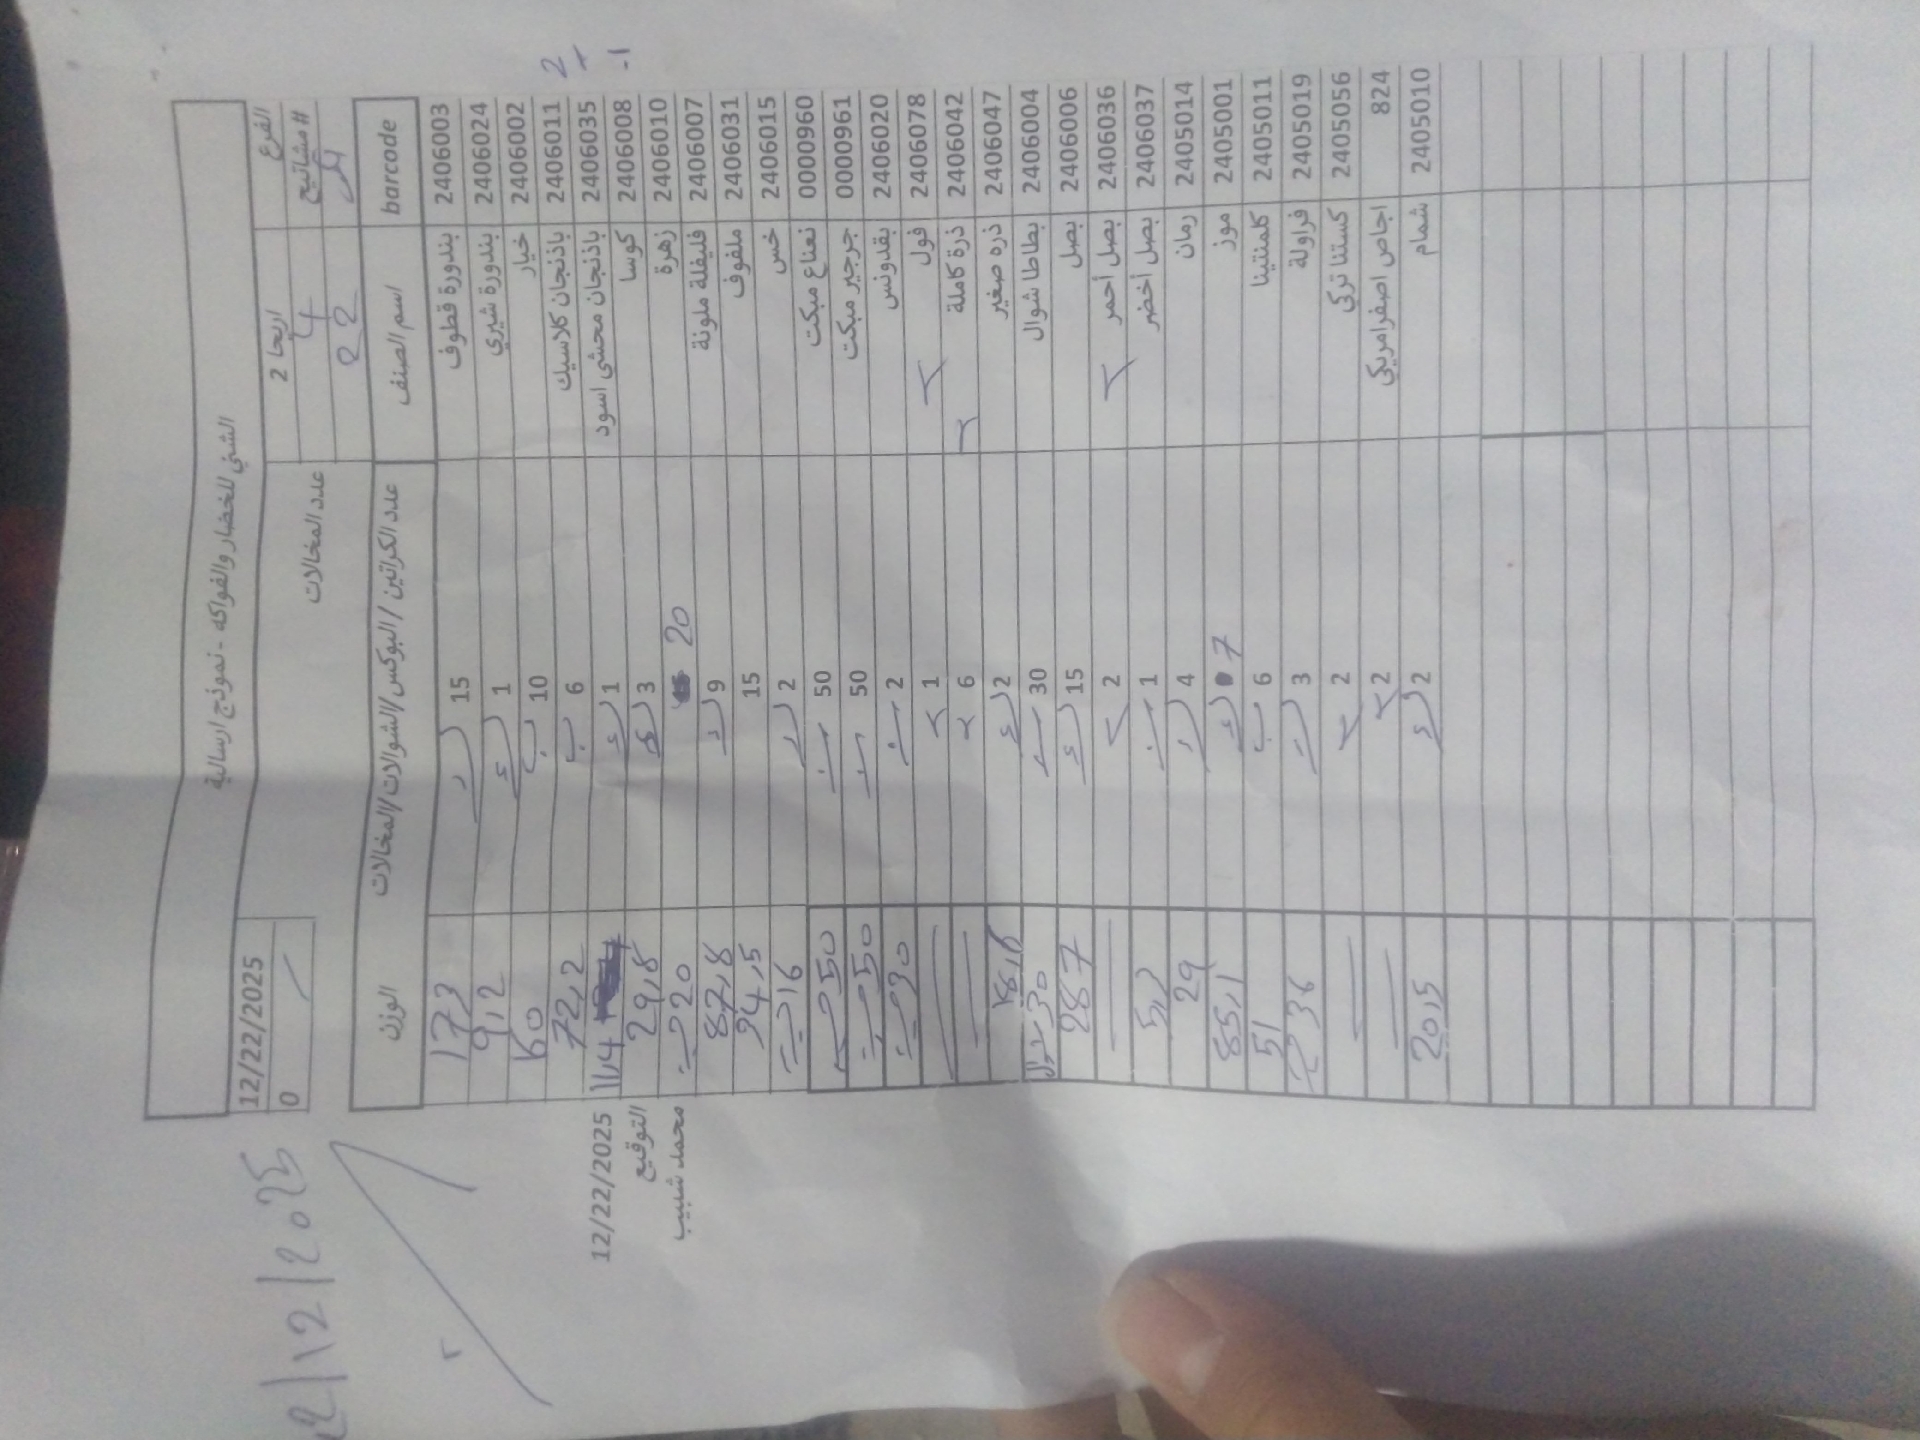 الشني للخضار والفواكه - نموذج ارسالية
الفرع اريحا 2 عدد المخالات 12/22/2025
#مشاتيح 4 0
22
barcode اسم الصنف عدد الكراتين / البوكس/الشوالات/المخالات الوزن
2406003 بندورة قطوف 15 173
2406024 بندورة شيري 1 9,2
2406002 خيار 10 60
2406011 باذنجان كلاسيك 6 72,2
2406035 باذنجان محشي اسود 1 11,4
2406008 كوسا 3 29,8
2406010 زهرة 20 20
2406007 فليفلة ملونة 9 87,8
2406031 ملفوف 15 94,5
2406015 خس 2 16
0000960 نعناع مبكت 50 50
0000961 جرجير مبكت 50 50
2406020 بقدونس 2 30
2406078 فول 1
2406042 ذرة كاملة 6
2406047 ذره صغير 2
2406004 بطاطا شوال 30 30 شوال
2406006 بصل 15 287
2406036 بصل أحمر 2
2406037 بصل أخضر 1
2405014 رمان 4 29
2405001 موز 7 85,1
2405011 كلمنتينا 6 51
2405019 فراولة 3 36
2405056 كستنا تركي 2
824 اجاص اصفر امريكي 2
2405010 شمام 2 20,5
12/22/2025
التوقيع
محمد شبيب